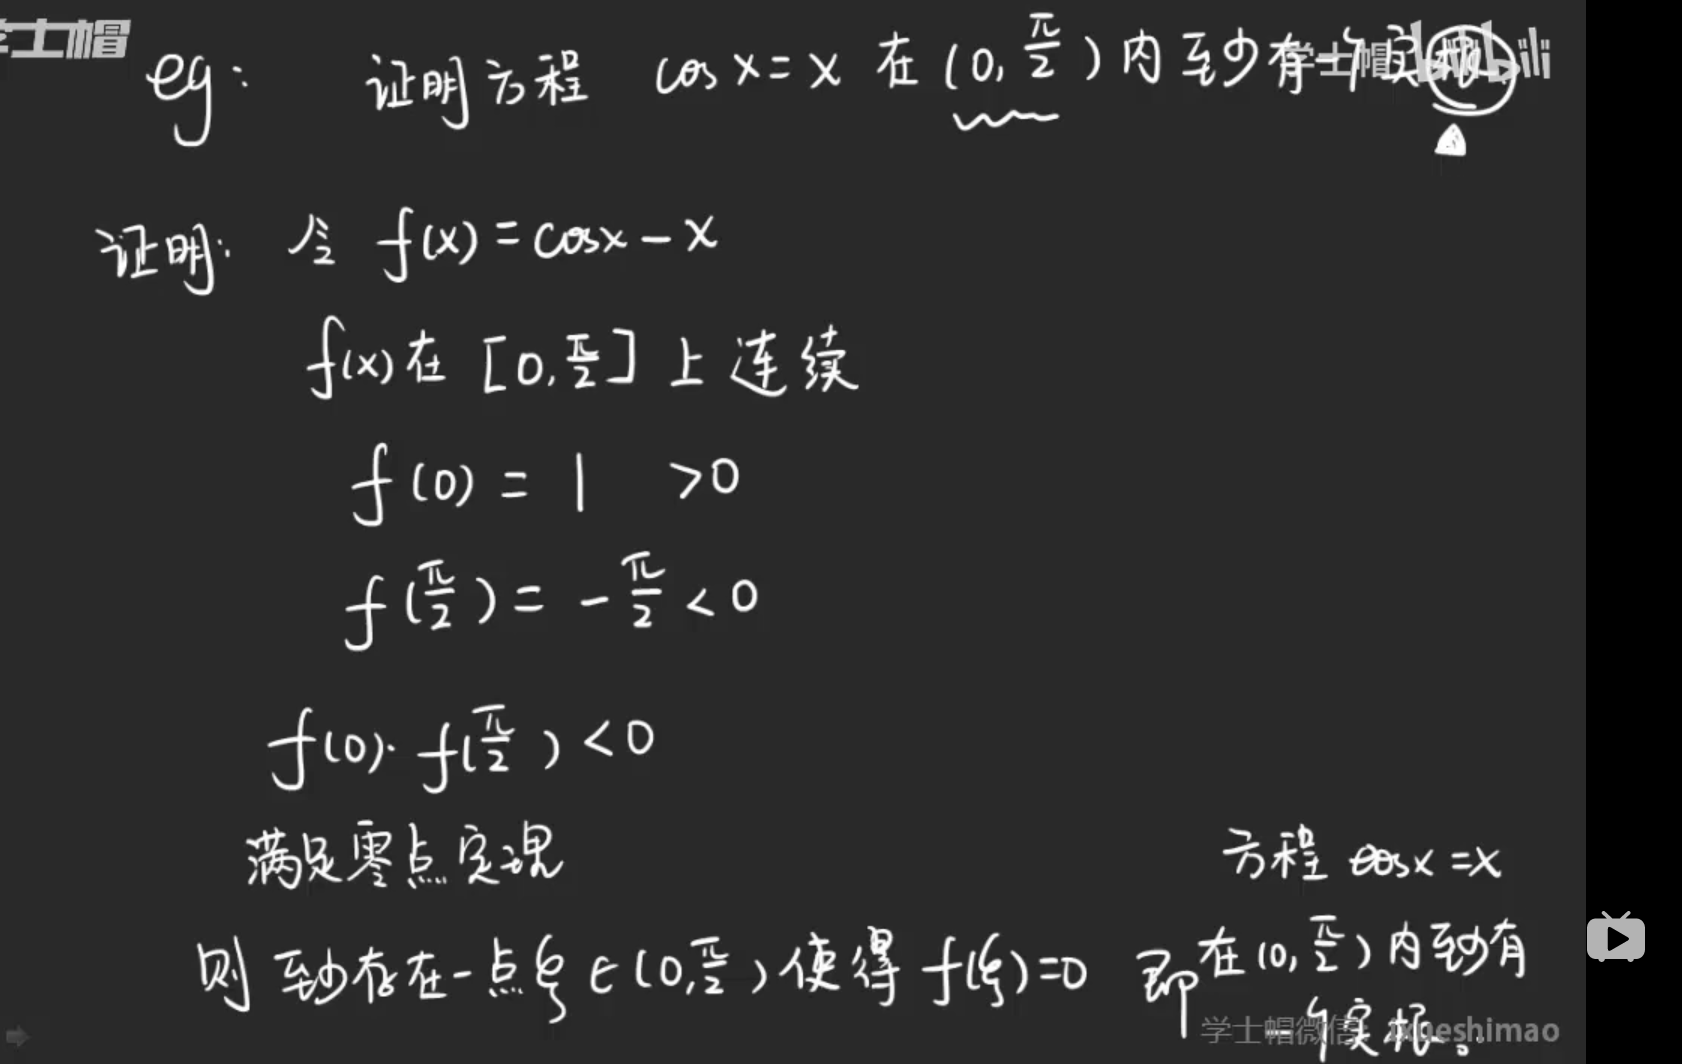 学士帽
eg: 证明方程 cos x = x 在 (0, π/2) 内至少有一个实根
学士帽 bilibili
证明: 令 f(x) = cosx - x
f(x) 在 [0, π/2] 上连续
f(0) = 1 >0
f(π/2) = - π/2 < 0
f(0)· f(π/2) < 0
满足零点定理
则至少存在一点 ξ ∈ (0, π/2) 使得 f(ξ)=0 即
方程 cosx = x
在 (0, π/2) 内至少有
一个实根。
学士帽微信: ixueshimao